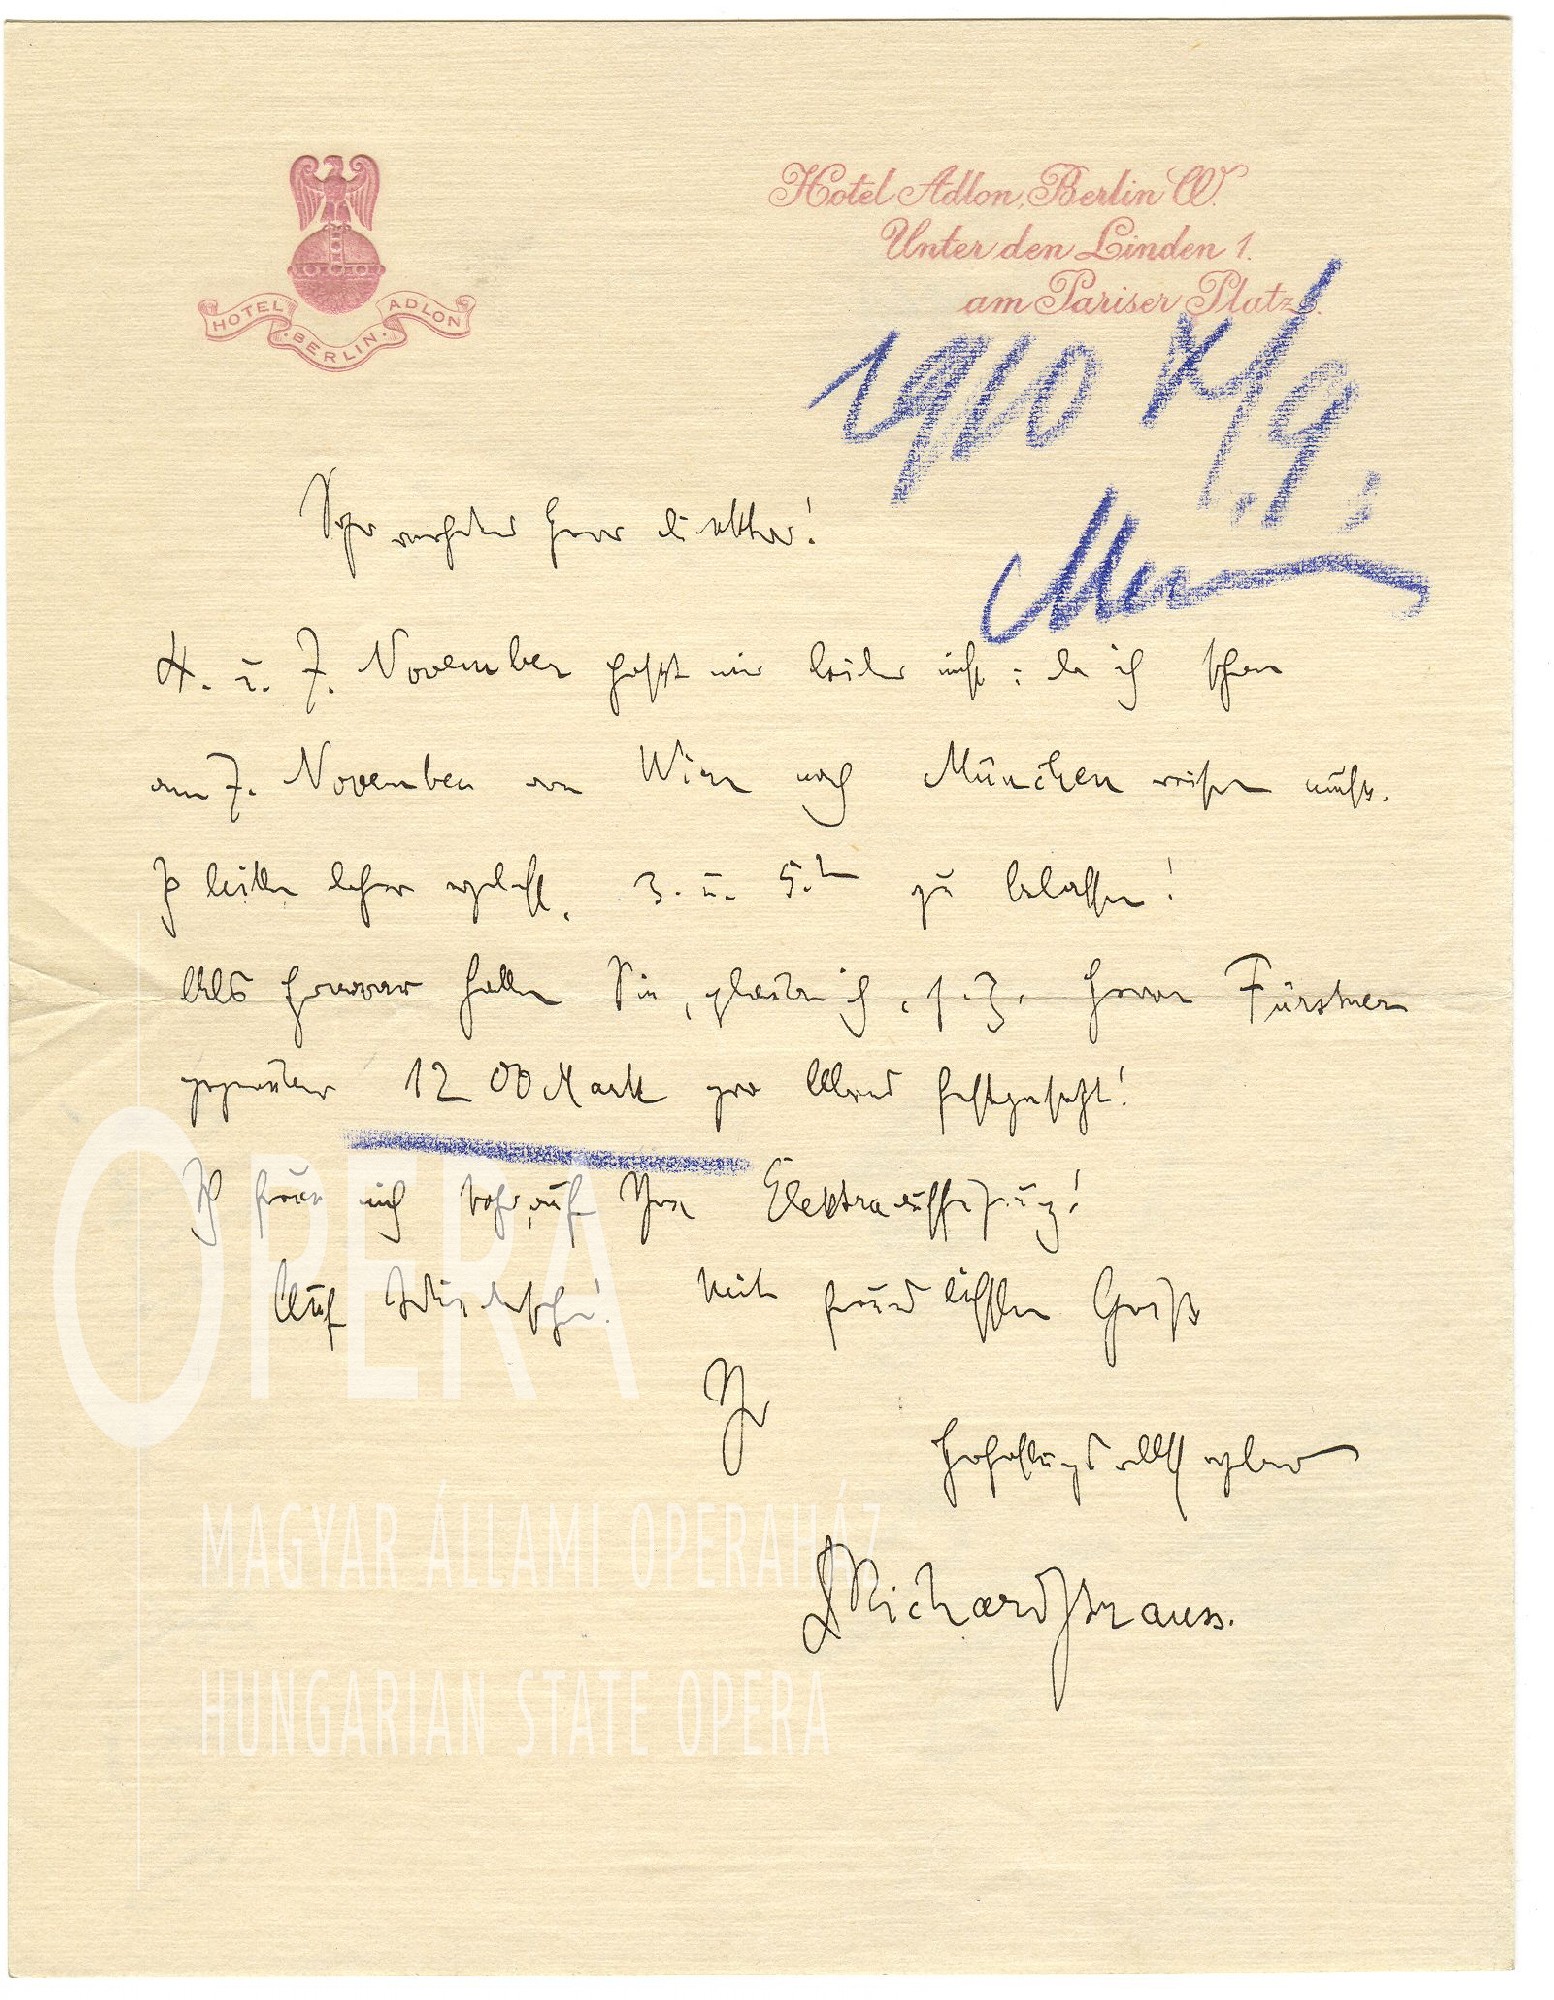 HOTEL ADLON
BERLIN
Hotel Adlon, Berlin W.
Unter den Linden 1.
am Pariser Platz.
1910
Sehr verehrter Herr Direktor!
4. u. 7. November passt mir leider nicht: da ich schon
am 7. November von Wien nach München reisen muß.
Ich bitte daher 3. u. 5. zu belassen!
Als Honorar hatten Sie, glaube ich, s. Z. Herrn Fürstner
gegenüber 1200 Mark pro Abend festgesetzt!
Ich freue mich sehr auf Ihre Elektraaufführung!
Auf Wiedersehn! Mit freundlichsten Gruß
Ihr
hochachtungsvollst ergebener
Dr Richard Strauss.
OPERA
MAGYAR ÁLLAMI OPERAHÁZ
HUNGARIAN STATE OPERA